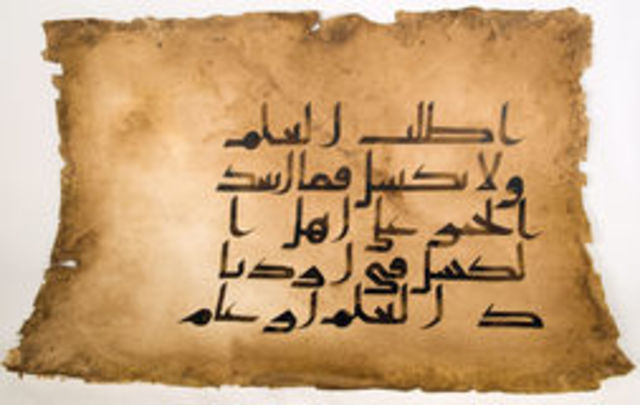 اطلب العلم
ولا تكسل فما ابعد
الخير على اهل ا
لكسل في ازديا
د العلم ارغام